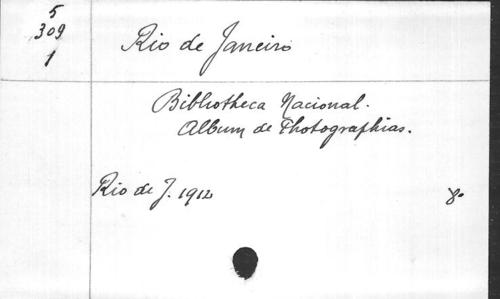 5
309
1
Rio de Janeiro
Bibliotheca Nacional.
Album de Photographias.
Rio de J. 1912
8º